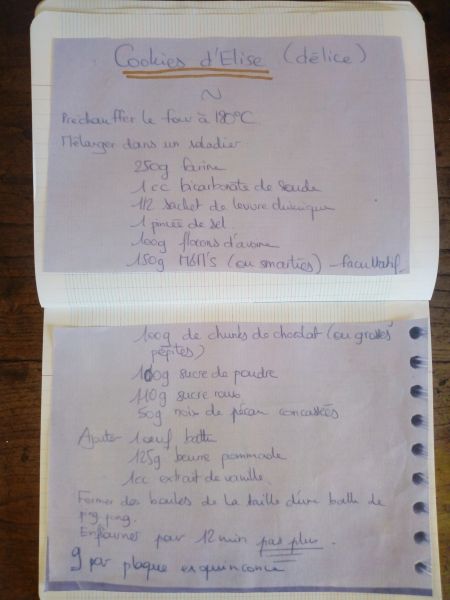 Cookies d'Elise (délice)
~
Préchauffer le four à 180°C
Mélanger dans un saladier
250g farine
1 cc bicarbonate de soude
1/2 sachet de levure chimique
1 pincée de sel
100g flocons d'avoine
150g M&M's (ou smarties) - facultatif.
100g de chunks de chocolat (ou grosses
pépites)
100g sucre de poudre
110g sucre roux
50g noix de pécan concassées
Ajouter 1 oeuf battu
125g beurre pommade
1cc extrait de vanille.
Former des boules de la taille d'une balle de
ping pong.
Enfourner par 12 min pas plus.
9 par plaque en quinconce